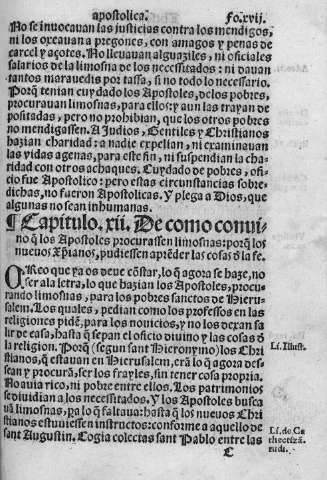 apostolica. Fo.xvij.
No se inuocauan las justicias contra los mendigos,
ni los oxeauan a pregones, con amagos y penas de
carcel y açotes. No lleuauan alguaziles, ni oficiales
salarios de la limosna de los necessitados: ni dauan
tantos marauedis por tassa, si no todo lo necessario.
Porq̃ tenian cuydado los Apostoles, de los pobres,
procurauan limosnas, para ellos: y aun las trayan de
positadas, pero no prohibian, que los otros pobres
no mendigassen. A Judios, Gentiles y Christianos
hazian charidad: a nadie expelian, ni examinauan
las vidas agenas, para este fin, ni suspendian la cha-
ridad con otros achaques. Cuydado de pobres, ofi-
cio fue Apostolico: pero estas circunstancias sobre-
dichas, no fueron Apostolicas. Y plega a Dios, que
algunas no sean inhumanas.
¶ Capitulo. xii. De como conui-
no q̃ los Apostoles procurassen limosnas: porq̃ los
nuevos Xp̃ianos, pudiessen aprẽder las cosas d̃ la fe.
CReo que ya os deue cõstar, lo q̃ agora se haze, no
ser a la letra, lo que hazian los Apostoles, procu-
rando limosnas, para los pobres sanctos de Hieru-
salem. Los quales, pedian como los professos en las
religiones pidẽ, para los nouicios, y no los dexan sa
lir de casa, hasta q̃ sepan el oficio diuino y las cosas d̃
la religion. Porq̃ (segun sant Hieronymo) los Chri
stianos, q̃ estauan en Hierusalem, erã lo q̃ agora des-
sean y procurã, ser los frayles, sin tener cosa propria.
No auia rico, ni pobre entre ellos. Los patrimonios
se diuidian a los necessitados. Y los Apostoles busca
uã limosnas, pa lo q̃ faltaua: hasta q̃ los nueuos Chri
stianos estuuiessen instructos: conforme a aquello de
sant Augustin. Cogia colectas sant Pablo entre las
C
Li. Illust.
Li. de Ca
thectizã
rudi.